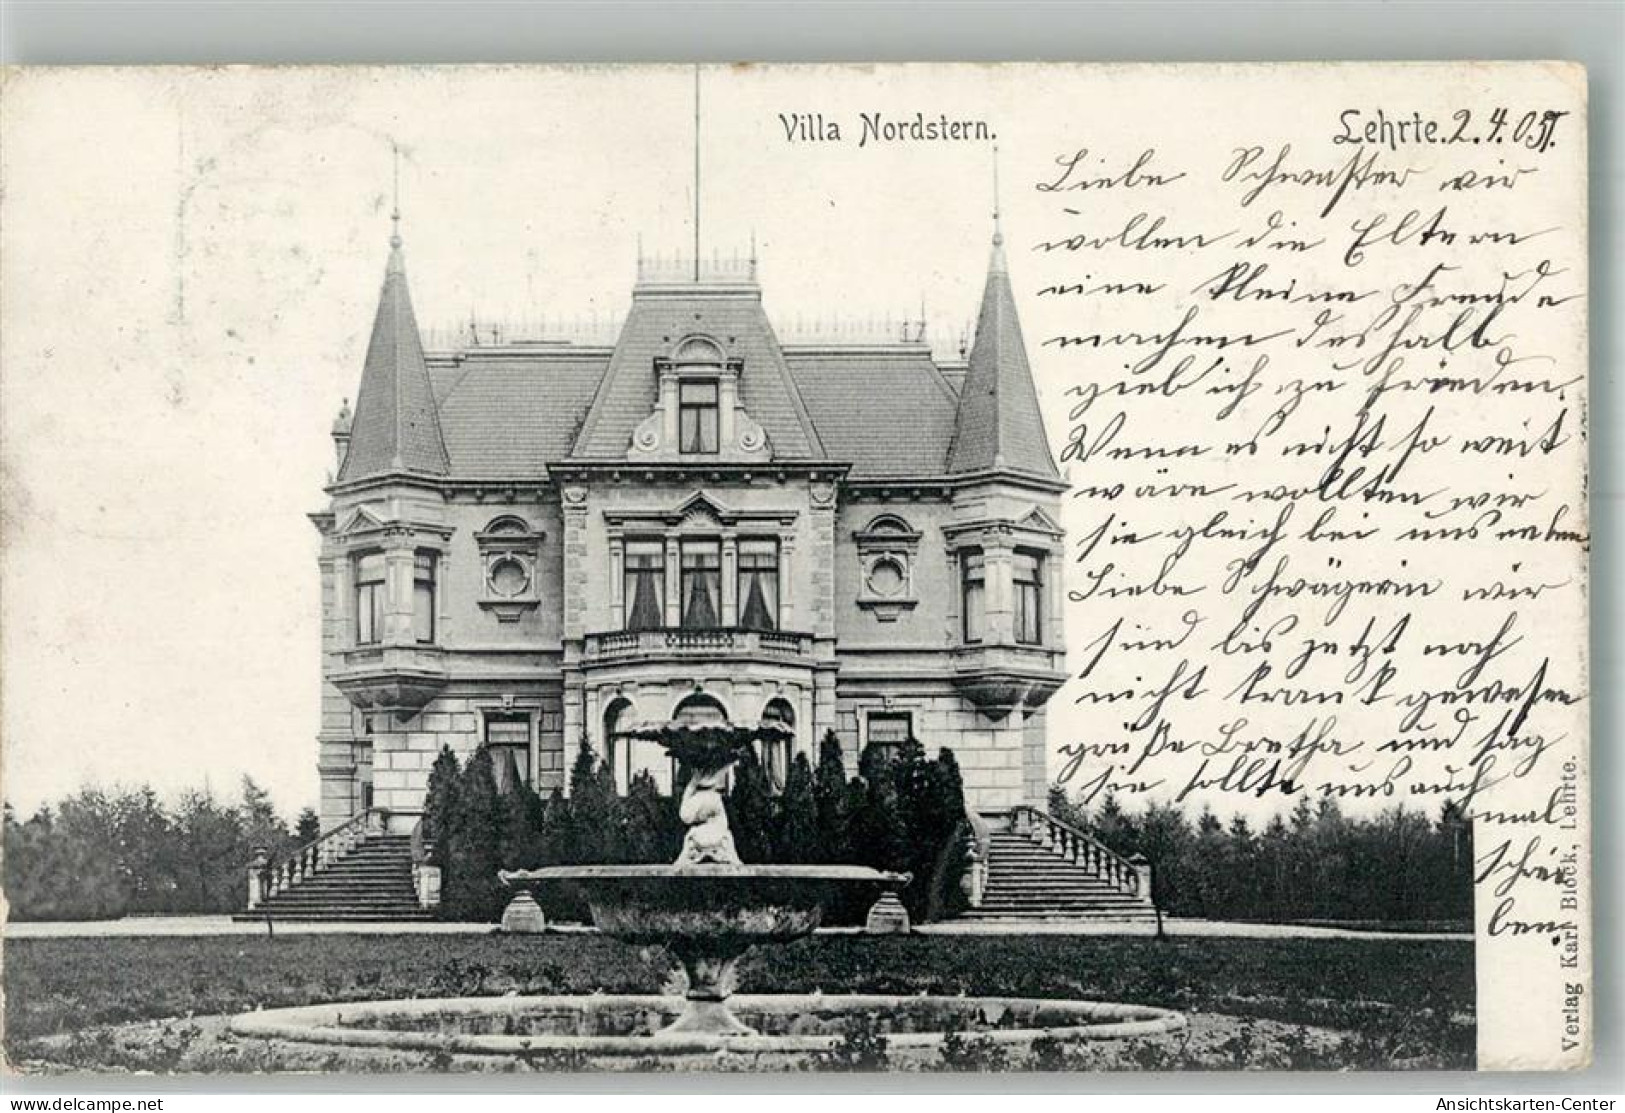 Villa Nordstern.
Lehrte. 2.4.05.
Liebe Schwester wir
wollen die Eltern
eine kleine Freude
machen deshalb
gieb ich zu frieden.
Wenn es nicht so weit
wäre wollten wir
sie gleich bei uns
Liebe Schwägerin wir
sind bis jetzt noch
nicht krank gewesen
grüße Bertha und sag
sie sollte uns auch
mal
schrei
ben.
Verlag Karl Block, Lehrte.
www.delcampe.net
Ansichtskarten-Center